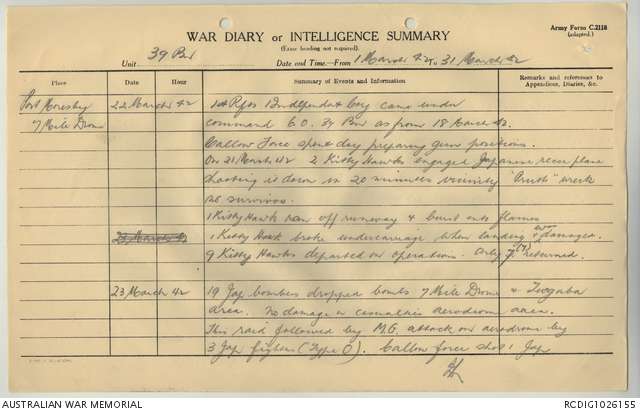 Army Form C.2118
(adapted.)
WAR DIARY or INTELLIGENCE SUMMARY
(Erase heading not required).
Unit 39 Bn Date and Time—From 1 March 42 To 31 March 42
Place Date Hour Summary of Events and Information Remarks and references to Appendices, Diaries, &c.
Port Moresby 22 March 42 1st Rfcs Independent Coy came under
7 Mile Drome command C.O. 39 Bn as from 18 March 42.
Callow Force spent day preparing gun positions.
On 21 March 42 2 Kitty Hawks engaged Japanese recce plane
shooting it down in 20 minutes vicinity "Pruth" wreck
no survivors.
1 Kitty Hawk ran off runway & burst into flames
23 March 42 1 Kitty Hawk broke undercarriage when landing & damaged.
9 Kitty Hawks departed on operations. Only 7 (7) returned.
23 March 42 19 Jap bombers dropped bombs 7 Mile Drome &
area. No damage or casualties aerodrome area.
This raid followed by M.G. attack on aerodrome by
3 Jap fighters (Type O). Callow force shot 1 Jap
AUSTRALIAN WAR MEMORIAL
RCDIG1026155